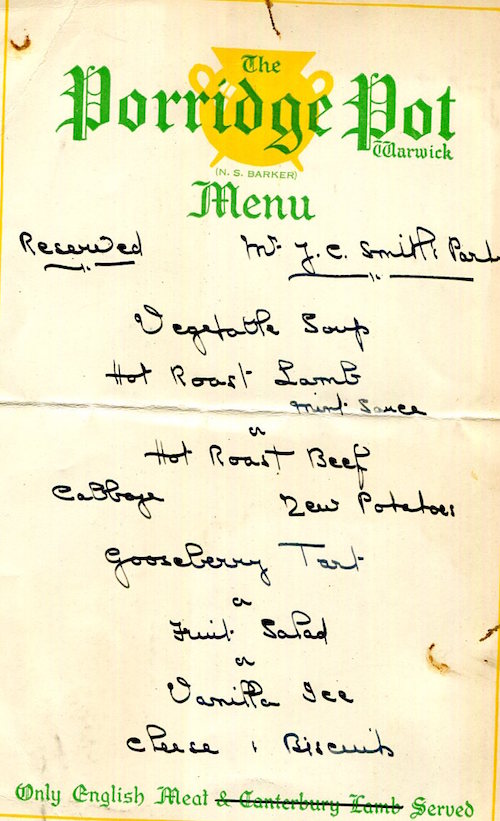 The
Porridge Pot
Warwick
(N. S. BARKER)
Menu
Reserved Mr J. C. Smith's Part
Vegetable Soup
Hot Roast Lamb
Mint Sauce
or
Hot Roast Beef
Cabbage New Potatoes
Gooseberry Tart
or
Fruit Salad
or
Vanilla Ice
Cheese & Biscuits
Only English Meat & Canterbury Lamb Served